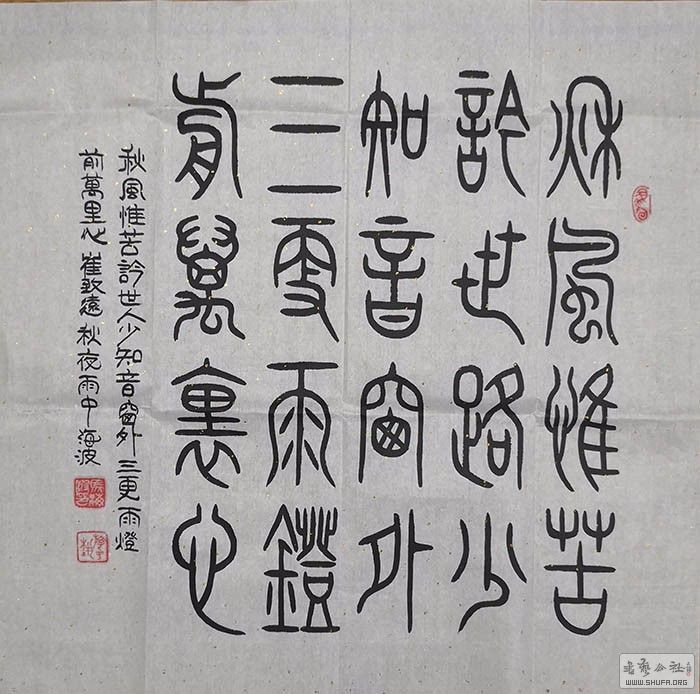 秋風惟苦
訡世路少
知音窗外
三更雨鐙
前萬裏心
秋風惟苦訡世人少知音窗外三更雨燈
前萬里心崔致遠秋夜雨中海波
書藝公社
WWW.SHUFA.ORG